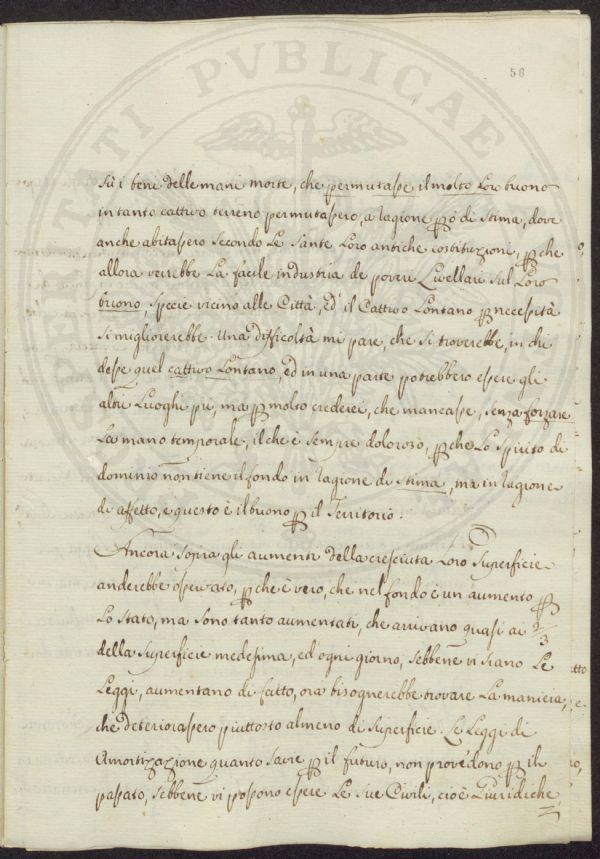 PROSPERITATI PVBLICAE
58
Sù i beni delle mani morte, che permutasse il molto Loro buono
in tanto cattivo terreno permutassero, a ragione però di Stima, dove
anche abitassero secondo Le Sante Loro antiche costituzione, perche
allora verrebbe La facile industria de poveri Livellari sul Loro
buono, specie vicino alle Città, ed il Cattivo Lontano per necessità
si migliorerebbe. Una difficoltà mi pare, che si troverebbe, in chi
desse quel cattivo Lontano, ed in una parte potrebbero essere gli
altri Luoghi pii, ma per molto crederei, che mancasse, senza forzare
La mano temporale, il che è sempre doloroso, perche Lo spirito di
dominio non tiene il fondo in ragione di Stima, ma in ragione
di affetto, e questo è il buono per il Territorio.
Ancora sopra gli aumenti della cresciuta Loro Superficie
anderebbe osservato, perche è vero, che nel fondo è un aumento per
Lo stato, ma sono tanto aumentati, che arrivano quasi ai 2/3
della superficie medesima, ed ogni giorno, sebbene vi siano Le
Leggi, aumentano di fatto, ora bisognerebbe trovare La maniera,
che deteriorassero piuttosto almeno di superficie. Le Leggi di
Amortizazione quanto savie per il futuro, non provedono per il
passato, sebbene vi possono essere Le sue Civili, cioè Giuridiche